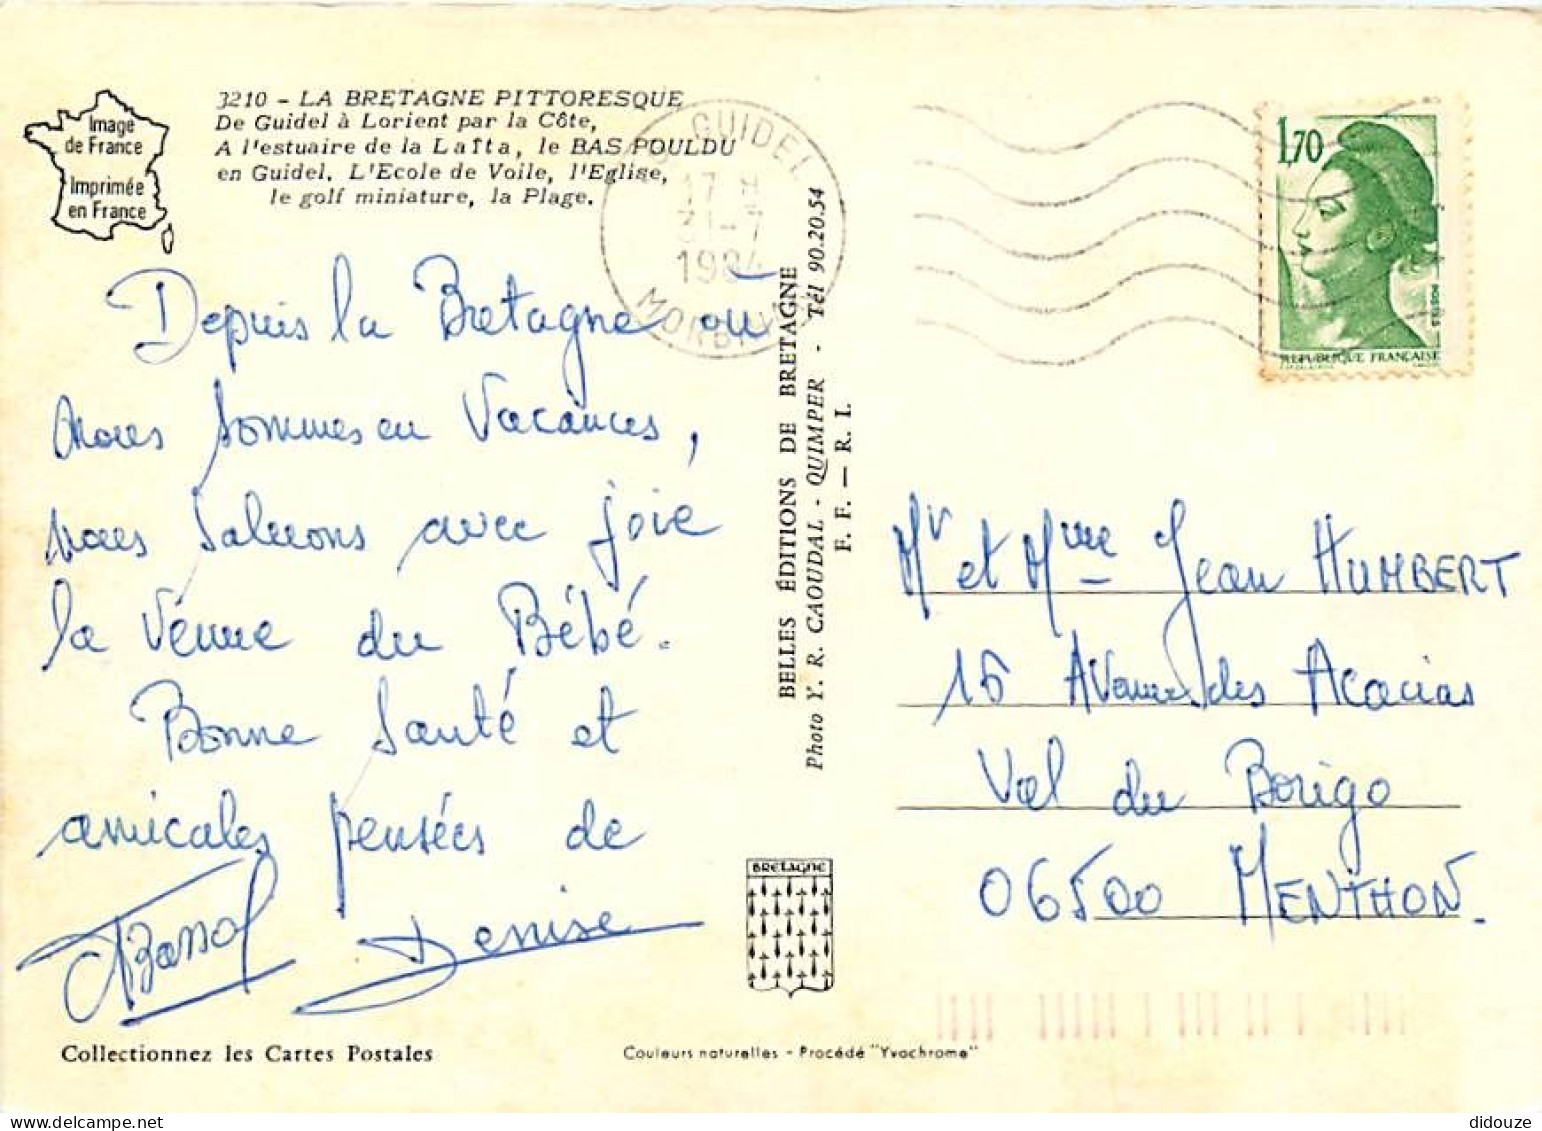 Image
de France
Imprimée
en France
3210 - LA BRETAGNE PITTORESQUE
De Guidel à Lorient par la Côte,
A l'estuaire de la Laïta, le BAS POULDU
en Guidel. L'Ecole de Voile, l'Eglise,
le golf miniature, la Plage.
GUIDEL
17 H
31-7
1984
MORBIHAN
1,70
POSTES
REPUBLIQUE FRANÇAISE
Depuis la Bretagne où
nous sommes en Vacances,
nous saluons avec joie
la venue du Bébé.
Bonne Santé et
amicales pensées de
Denise
BELLES ÉDITIONS DE BRETAGNE
Photo Y. R. CAOUDAL - QUIMPER - Tél 90.20.54
F. F. — R. I.
Mr et Mme Jean HUMBERT
15 Avenue des Acacias
Val du Borigo
06500 MENTHON.
BRETAGNE
Collectionnez les Cartes Postales
Couleurs naturelles - Procédé "Yvochrome"
didouze